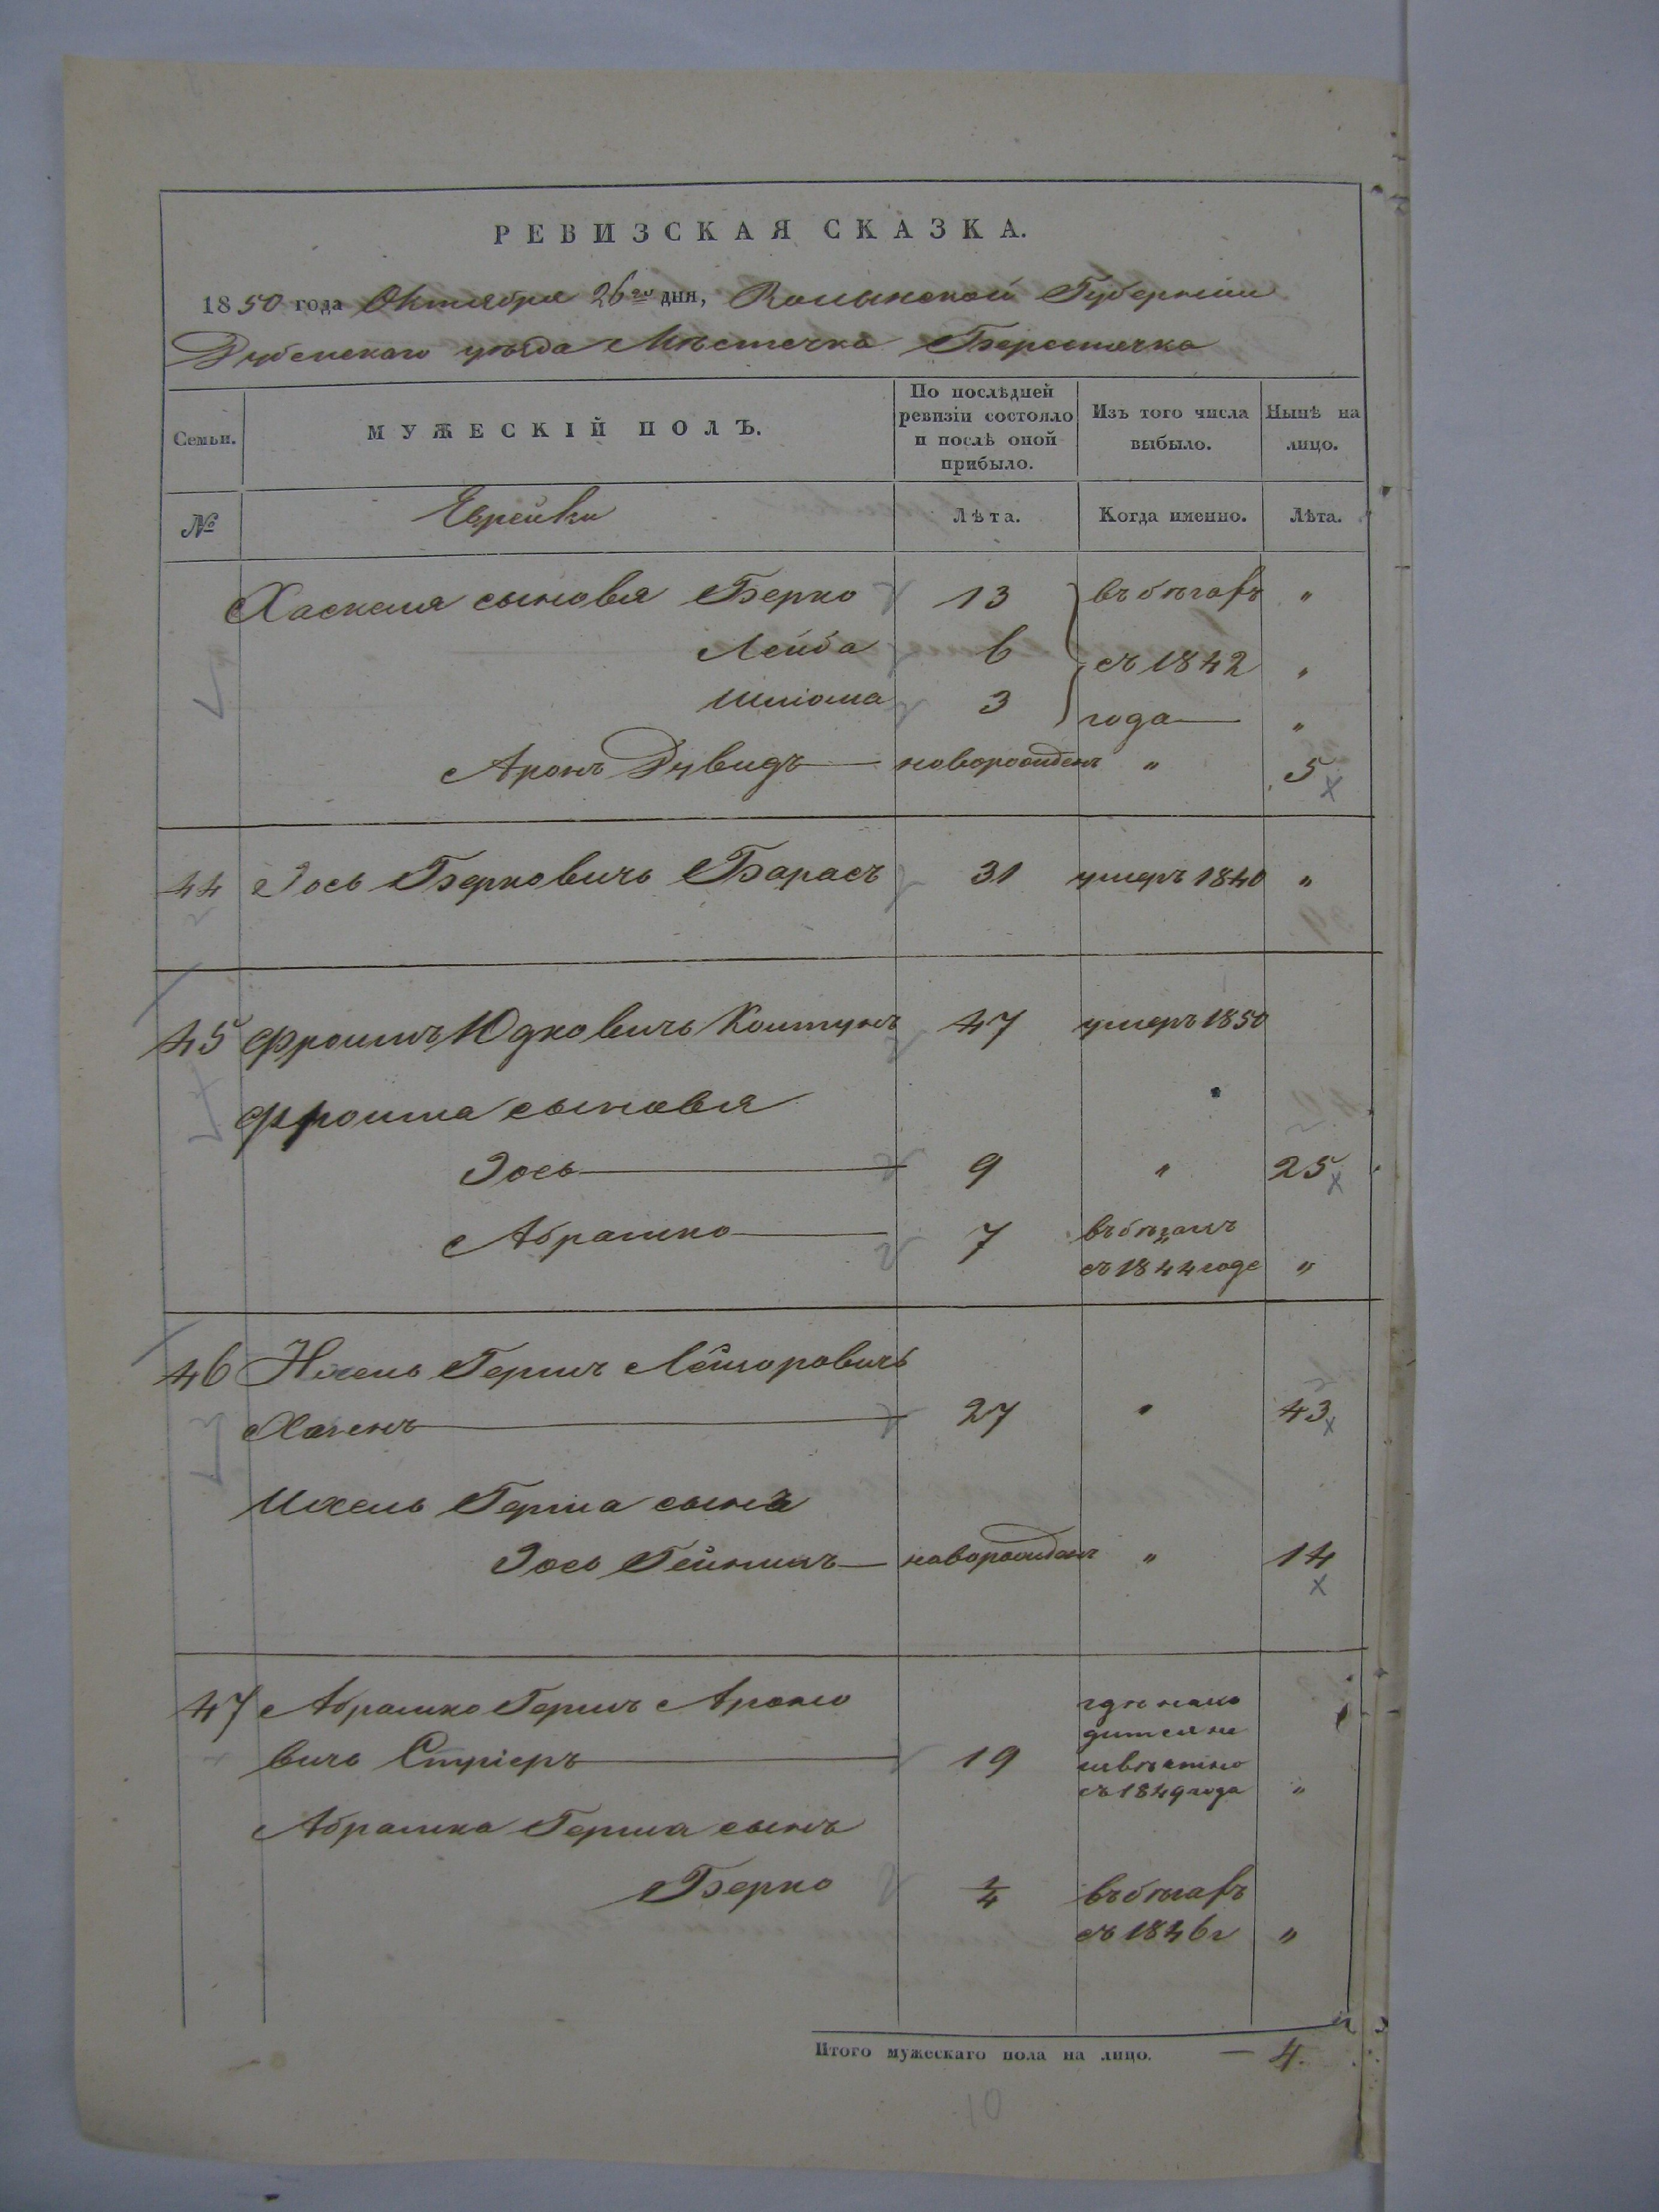 РЕВИЗСКАЯ СКАЗКА.
1850 года Октября 26го дня, Волынской Губернiи
Дубенскаго уѣзда Мѣстечка Берестечка
Семьи.
МУЖЕСКІЙ ПОЛЪ.
По послѣдней ревизіи состояло и послѣ оной прибыло.
Изъ того числа выбыло.
Нынѣ на лицо.
№
Еврейки
Лѣта.
Когда именно.
Лѣта.
Хаскеля сыновья Берко 13 въ бѣгахъ "
Лейба 6 съ 1842 "
Шлiома 3 года "
Аронъ Дувидъ новорожденъ " 5
44 Iось Берковичь Барасъ 31 умеръ 1840 "
45 Фроимъ Юдковичь Колтунъ 47 умеръ 1850
Фроима сыновья
Iось 9 " 25
Абрамко 7 въ бѣгахъ
съ 1844 года "
46 Гершъ Лейзоровичь
27 " 43
Герша сынъ
Iось новорожденъ " 14
47 Абрамко Гершъ Ароно
вичь Стрiеръ 19 гдѣ нахо
дится не
извѣстно
съ 1849 года "
Абрамка Герша сынъ
Берко 1/4 въ бѣгахъ
съ 1846 г "
Итого мужескаго пола на лицо. — 4.
10